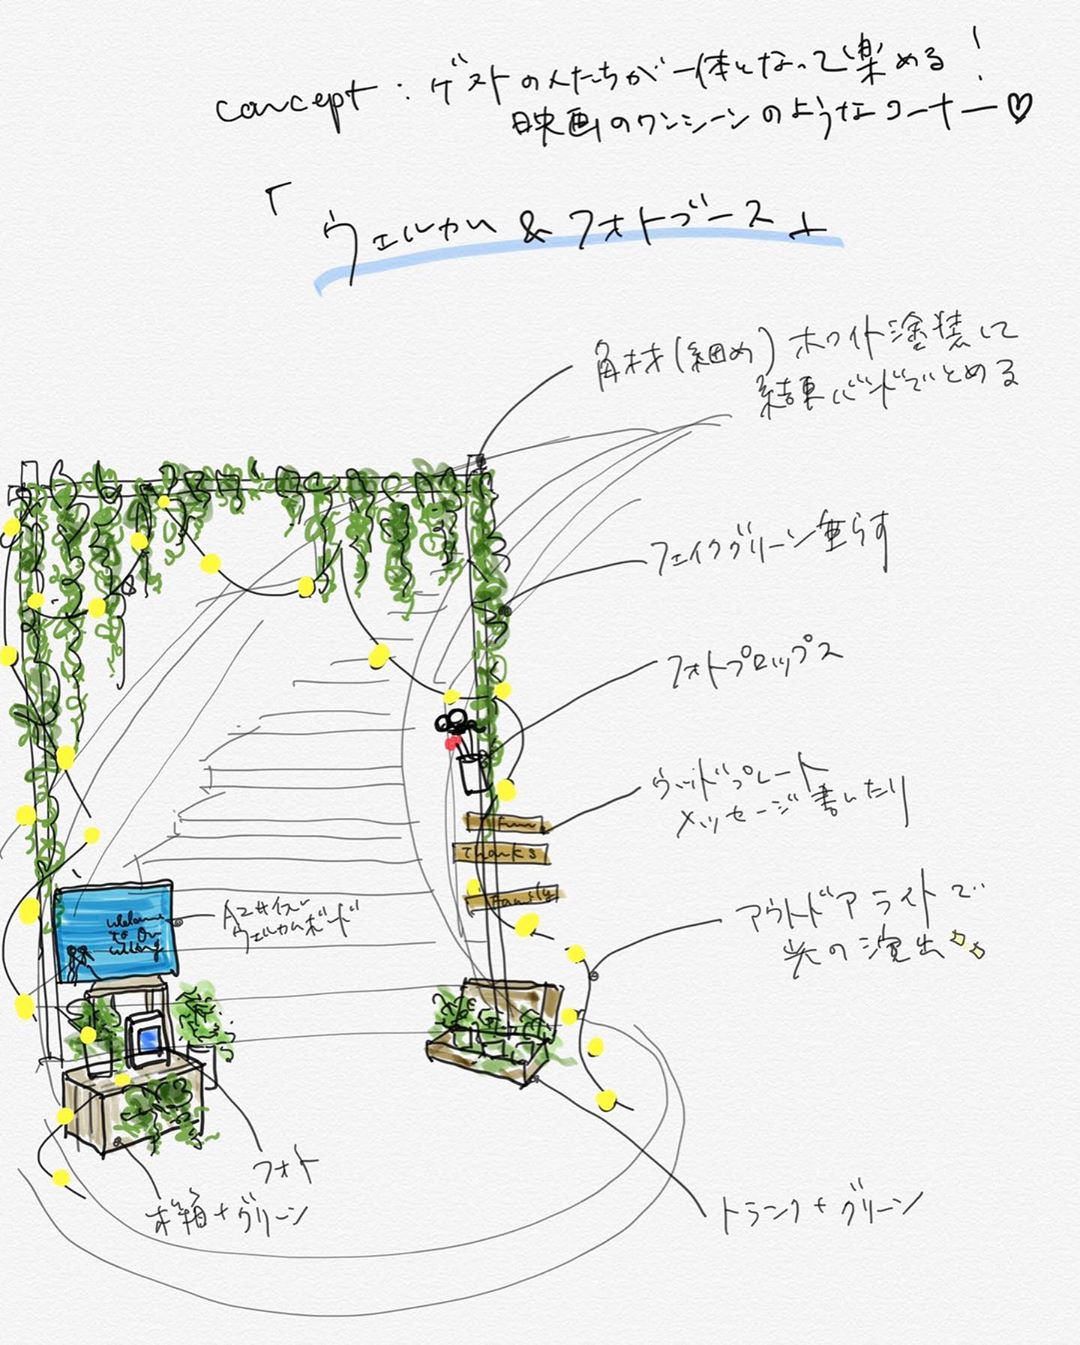 concept : ゲストの人たちが一体となって楽める!
映画のワンシーンのようなコーナー♡
「ウェルカム & フォトブース」
角材(細め)ホワイト塗装して
結束バンドでとめる
フェイクグリーン垂らす
フォトプロップス
ウッドプレート
メッセージ書いたり
fun
Thanks
Family
A2サイズ
ウェルカムボード
welcome
to Our
wedding
アウトドアライトで
光の演出
フォト
木箱+グリーン
トランク+グリーン